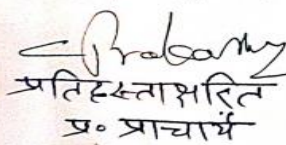 प्रतिहस्ताक्षरित
प्र० प्राचार्य